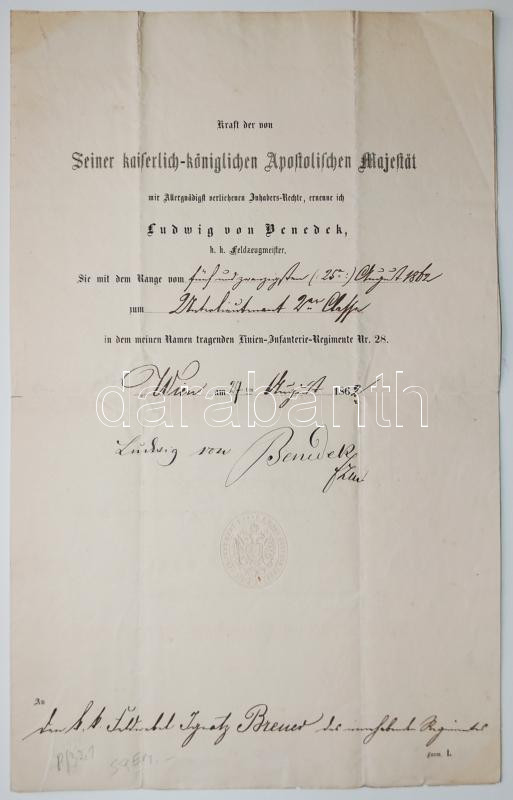 Kraft der von
Seiner kaiserlich-königlichen Apostolischen Majestät
mir Allergnädigst verliehenen Inhabers-Rechte, ernenne ich
Ludwig von Benedek,
k. k. Feldzeugmeister,
Sie mit dem Range vom fünf und zwanzigsten (: 25ten :) August 1862
zum Unterlieutenant 2ter Classe
in dem meinen Namen tragenden Linien-Infanterie-Regimente Nr. 28.
Wien am 27ten August 1862
darabanth
Ludwig von Benedek
FZM
An
den k. k. Feldwebel Ignatz Breuer des innhabenden Regimentes
Form. 1.